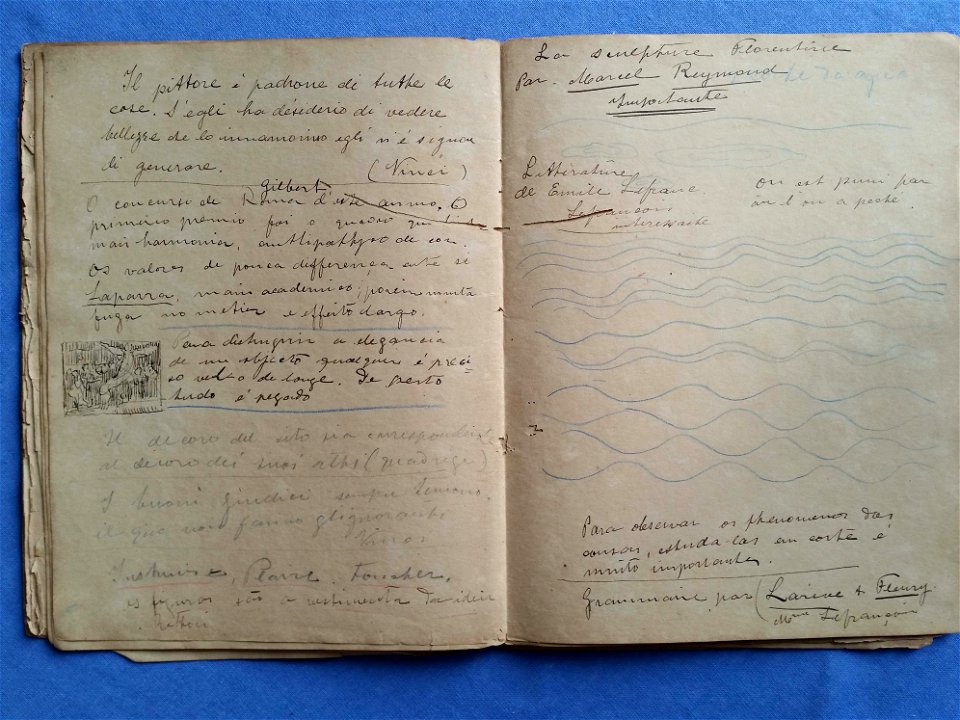 Il pittore è padrone di tutte le
cose. S'egli ha desiderio di vedere
bellezze che lo innamorino egli n'é signore
di generare.
(Vinci)
Gilbert
O concurso de Roma d'este anno. O
primeiro premio foi o quadro
mais harmonia, de cor.
Os valores de pouca differença entre si
Laparra, mais academico, porem muita
fuga no metier e effeito largo.
Para distinguir a elegancia
de um objecto qualquer é preci-
so vel-o de longe. De perto
tudo é pegado
Il decoro del sito sia corrispondente
al decoro dei suoi atti (quadrege)
I buoni giudici sempre temono,
il que non fanno gl'ignoranti
Vinci
Pierre Foucher.
as figuras são a vestimenta da ideia
La sculpture Florentine
Par Marcel Reymond
Importante
da agua
Littérature
de Emile Lefranc
Lefrançois
interessante
On est puni par
où l'on a péché.
Para observar os phenomenos das
cousas, estuda-las em corte é
muito importante.
Grammaire par (Larive & Fleury
Mme Lefrançois